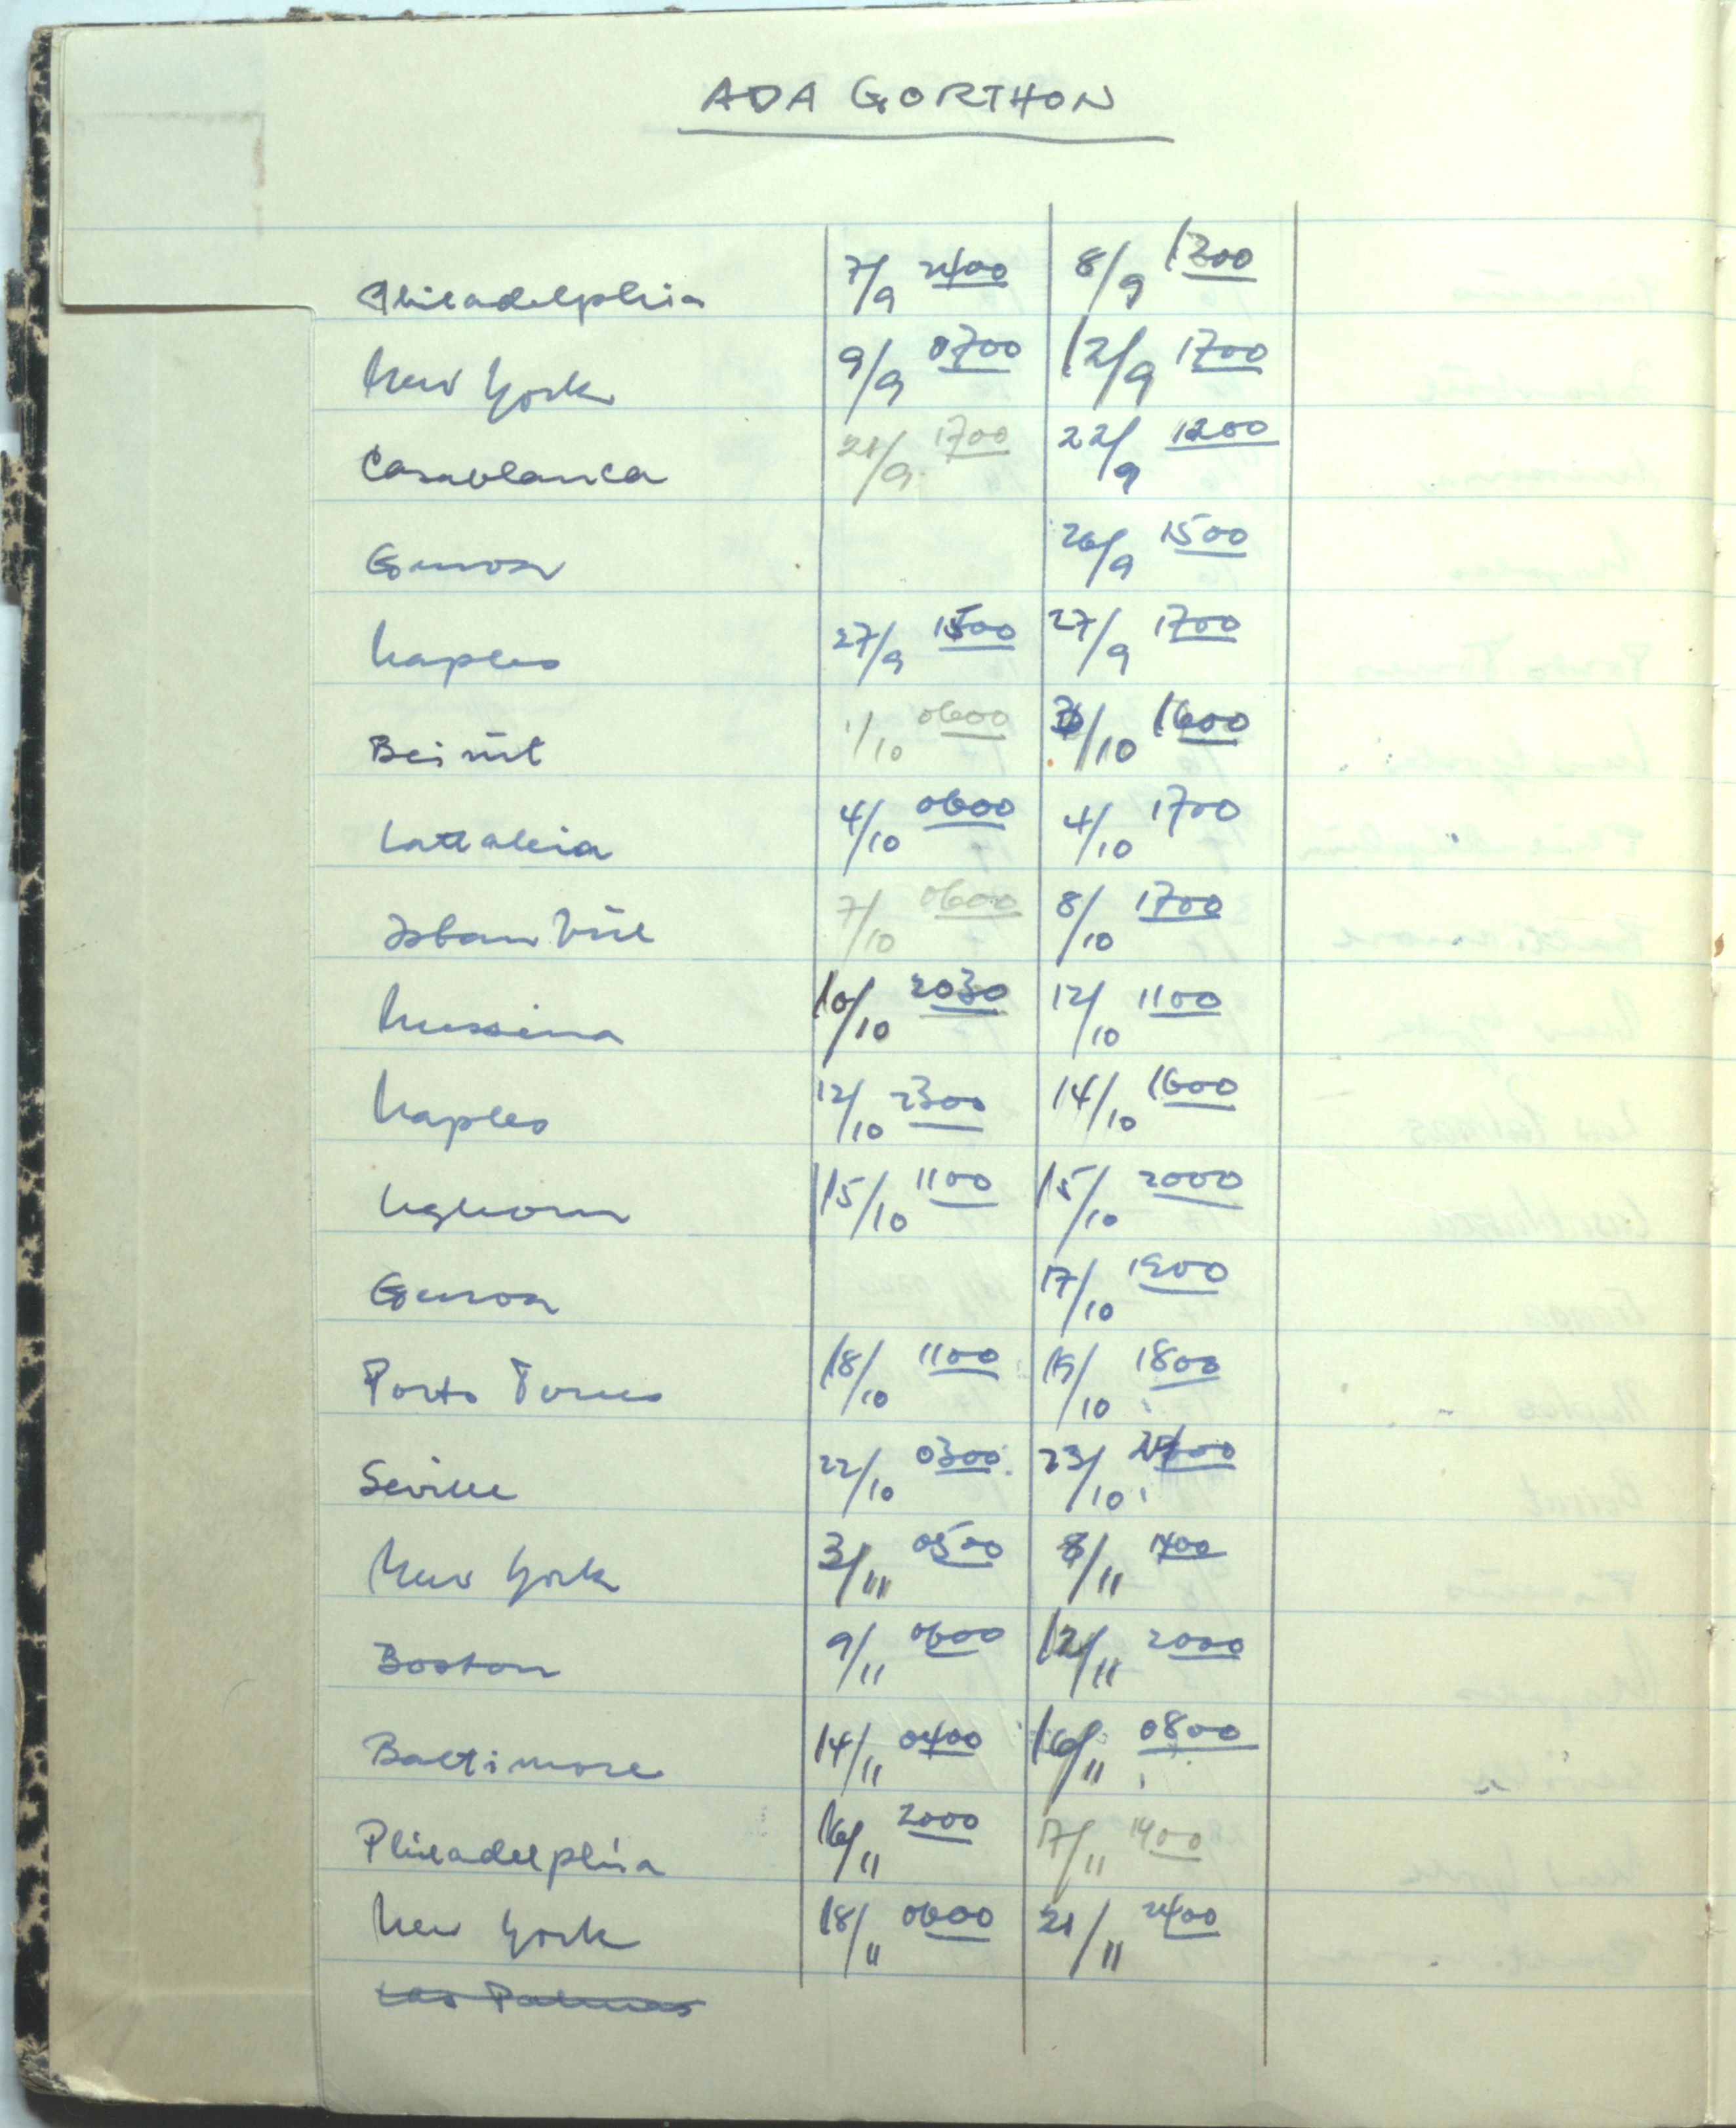 ADA GORTHON
Philadelphia 7/9 2400 8/9 1300
New York 9/9 0700 12/9 1700
Casablanca 21/9 1700 22/9 1200
Genoa 26/9 1500
Naples 27/9 1500 27/9 1700
Beirut 1/10 0600 /10 1600
Lattakia 4/10 0600 4/10 1700
Istanbul 7/10 0600 8/10 1700
Messina 10/10 2030 12/10 1100
Naples 12/10 2300 14/10 1600
Leghorn 15/10 1100 15/10 2000
Genoa 17/10 1900
Porto Torres 18/10 1100 19/10 1800
Seville 22/10 0300 23/10 2400
New York 3/11 0500 8/11 1400
Boston 9/11 0600 12/11 2000
Baltimore 14/11 0400 16/11 0800
Philadelphia 16/11 2000 17/11 1400
New York 18/11 0600 21/11 2400
Las Palmas